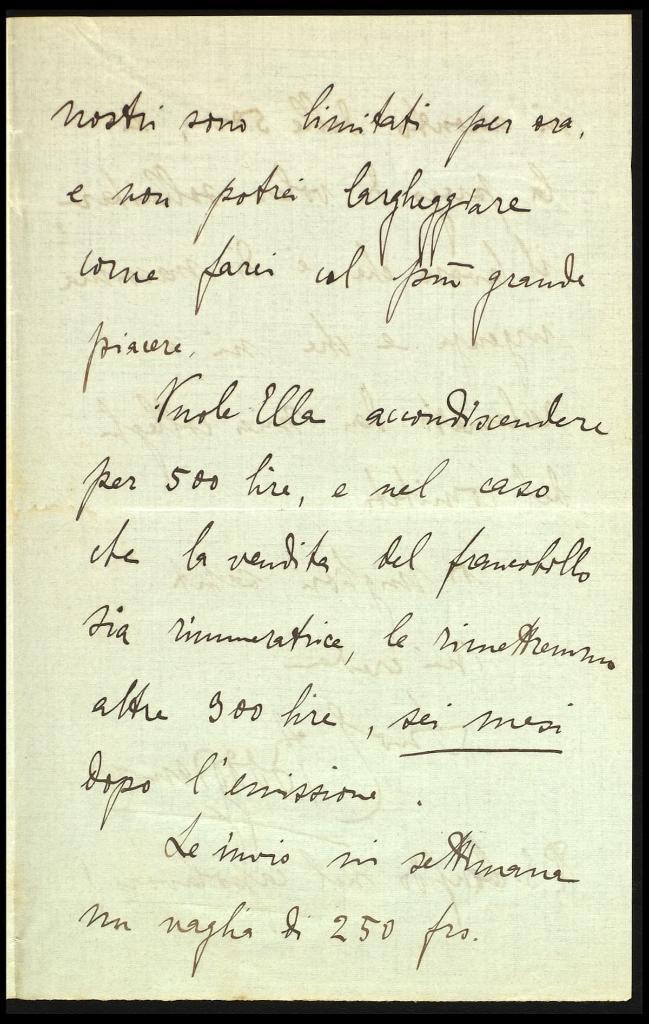 nostri sono limitati per ora,
e non potrei largheggiare
come farei col più grande
piacere.
Vuole Ella accondiscendere
per 500 lire, e nel caso
che la vendita del francobollo
sia rimuneratrice, le rimetteremo
altre 300 lire, sei mesi
dopo l'emissione.
Le invio in settimana
un vaglia di 250 frs.